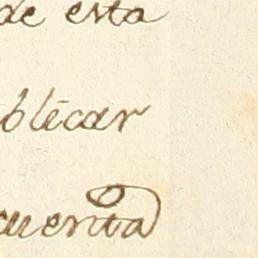 de esta
blicar
cuenta